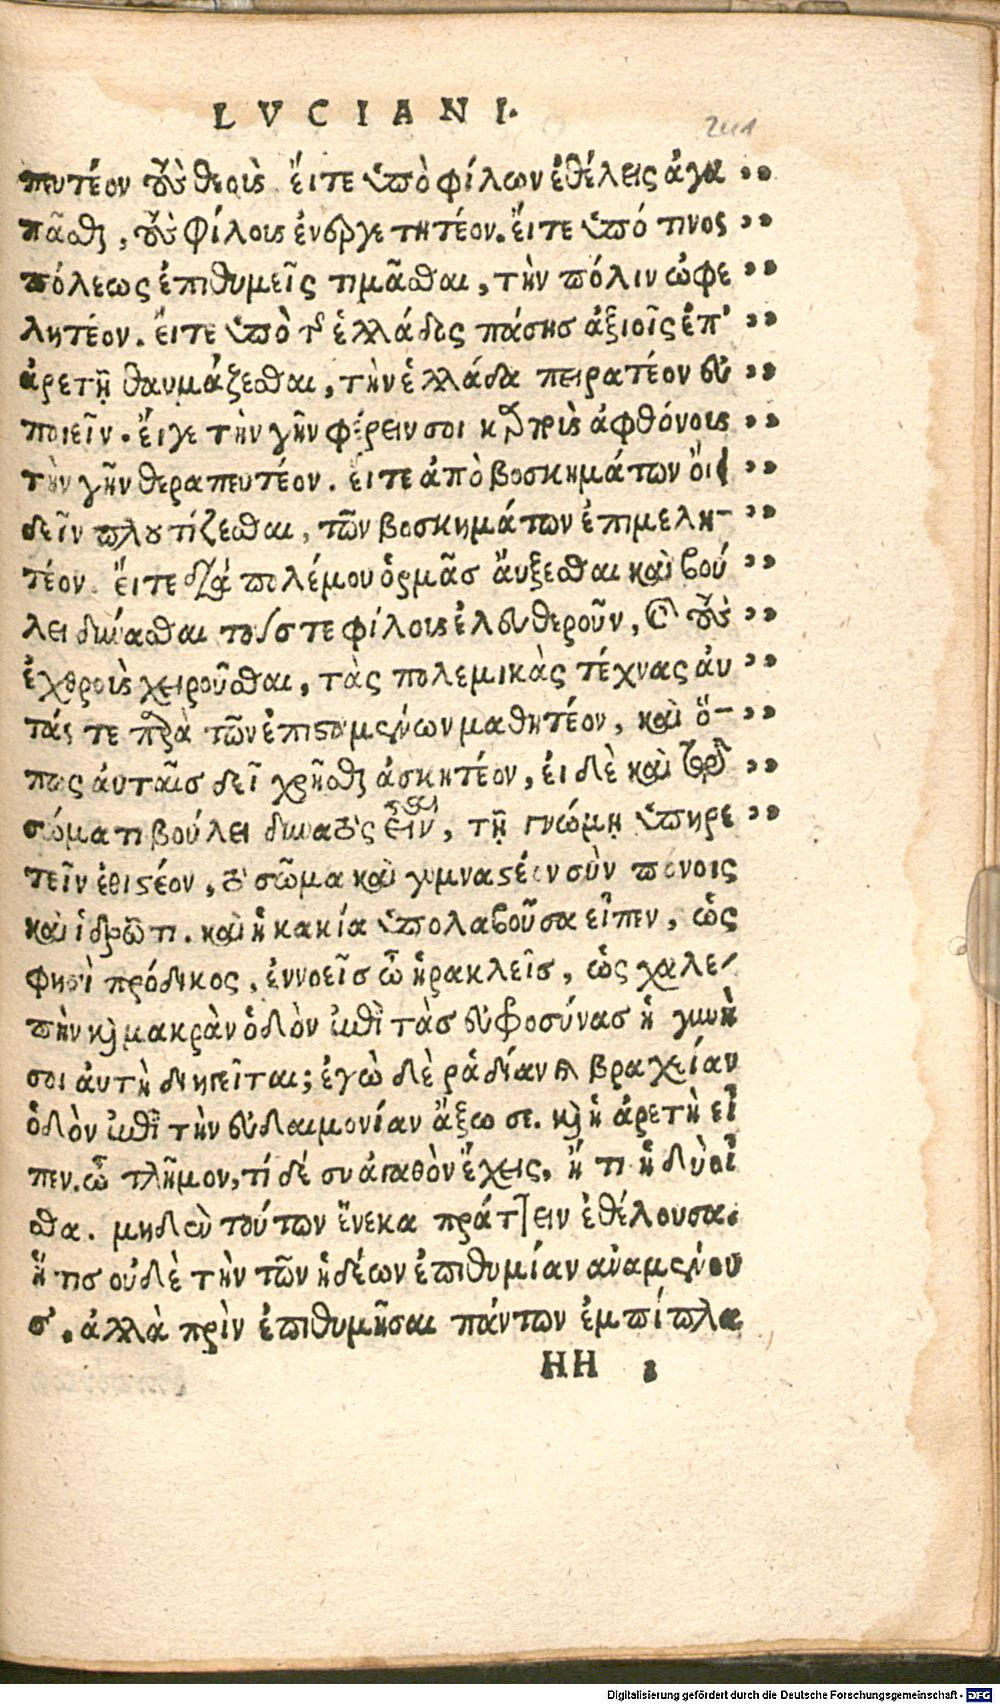 LVCIANI.
241
πευτέον τοὺς θεούς. ἔιτε ὑπὸ φίλων ἐθέλεις ἀγα ,,
πᾶσθαι, τοὺς φίλους ἐυεργετητέον. ἔιτε ὑπό τινος ,,
πόλεως ἐπιθυμεῖς τιμᾶσθαι, τὴν πόλιν ὠφε ,,
λητέον. ἔιτε ὑπὸ τῆς ἑλλάδος πάσης ἀξιοῖς ἐπ' ,,
ἀρετῇ θαυμάζεσθαι, τὴν ἑλλάδα πειρατέον ευ ,,
ποιεῖν. ἔιγε τὴν γῆν φέρειν σοι καρποὺς ἀφθόνους ,,
τὴν γῆν θεραπευτέον. ἔιτε ἀπὸ βοσκημάτων ὄιει ,,
δεῖν πλουτίζεσθαι, τῶν βοσκημάτων ἐπιμελη- ,,
τέον. ἔιτε διά πολέμου ὁρμᾶς ἄυξεσθαι καὶ βού ,,
λει δύνασθαι τούς τε φίλους ἐλευθεροῦν, καὶ τοὺς ,,
ἐχθροὺς χειροῦσθαι, τὰς πολεμικὰς τέχνας ἀυ ,,
τάς τε παρὰ τῶν ἐπισταμένων μαθητέον, καὶ ὅ- ,,
πως ἀυταῖς δεῖ χρῆσθαι ἀσκητέον, ἐι δὲ καὶ τῷ ,,
σώματι βούλει δυνατὸς εἶναι, τῇ γνώμῃ ὑπηρε ,,
τεῖν ἐθιστέον, τὸ σῶμα καὶ γυμναστέον σὺν πόνοις
καὶ ἱδρῶτι. καὶ ἡ κακία ὑπολαβοῦσα εἶπεν, ὥς
φησὶ πρόδικος, ἐννοεῖς ὦ ἡράκλεις, ὡς χαλε-
πὴν καὶ μακρὰν ὁδὸν ἐπὶ τὰς ευφροσύνας ἡ γυνὴ
σοι ἀυτὴ διηγεῖται; ἐγὼ δὲ ῥᾳδίαν καὶ βραχεῖαν
ὁδὸν ἐπὶ τὴν ευδαιμονίαν ἄξω σε. καὶ ἡ ἀρετὴ εἶ
πεν. ὦ τλῆμον, τί δέ συ ἀγαθὸν ἔχεις, ἤ τι ἡδὺ οἶ
σθα. μηδὲν τούτων ἕνεκα πράττειν ἐθέλουσα.
ἥτις οὐδὲ τὴν τῶν ἡδέων ἐπιθυμίαν αναμένου
σ'. ἀλλὰ πρὶν ἐπιθυμῆσαι πάντων ἐμπίπλα
HH
Digitalisierung gefördert durch die Deutsche Forschungsgemeinschaft - DFG